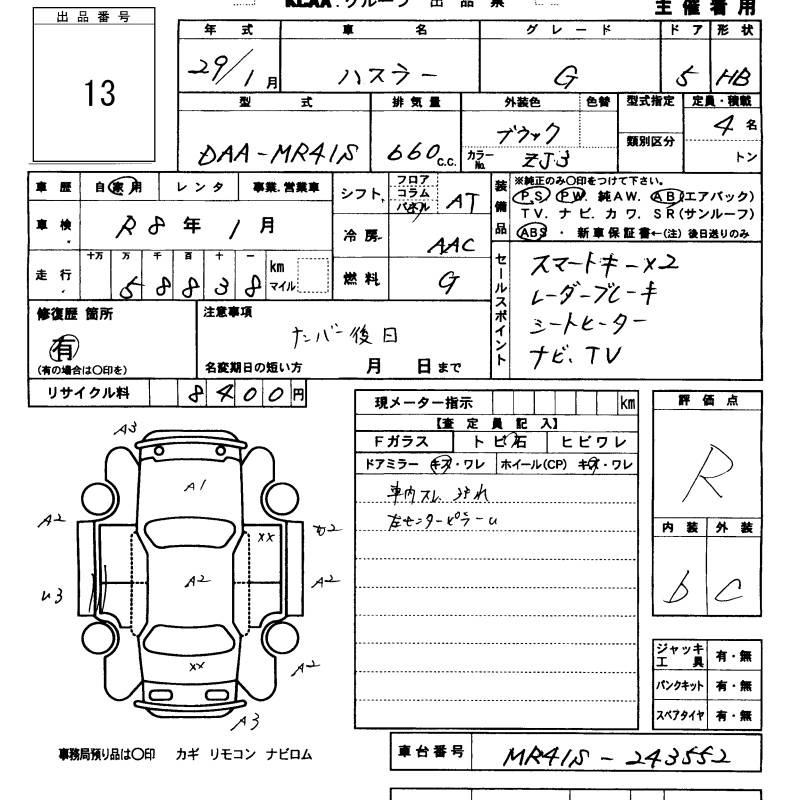 KCAA.グループ 出品票
主催者用
出品番号
13
年式 車名 グレード ドア 形状
29/1月 ハスラー G 5 HB
型式 排気量 外装色 色替 型式指定 定員・積載
DAA-MR41S 660c.c. ブラック カラーNo. ZJ3 類別区分 4名 トン
車歴 自家用 レンタ 事業.営業車
車検 R8年1月
走行 十万 万 千 百 十 一
58838 km マイル
シフト フロア コラム パネル AT
冷房 AAC
燃料 G
装備品 ※純正のみ〇印をつけて下さい。
PS PW 純AW. AB(エアバック)
TV. ナビ. カワ. SR(サンルーフ)
ABS ・ 新車保証書←(注) 後日送りのみ
セールスポイント
スマートキー×2
レーダーブレーキ
シートヒーター
ナビ.TV
修復歴 箇所
有
(有の場合は〇印を)
注意事項
ナンバー後日
名変期日の短い方 月 日まで
リサイクル料 8400円
現メーター指示 km
【査定員記入】
Fガラス トビ石 ヒビワレ
ドアミラー キズ・ワレ ホイール(CP) キズ・ワレ
車内スレ ヨゴれ
左センターピラーU
評価点
R
内装 外装
b C
A3
A1
A2
XX
A2
A2
U3
A2
XX
A2
A3
ジャッキ工具 有・無
パンクキット 有・無
スペアタイヤ 有・無
事務局預り品は〇印 カギ リモコン ナビロム
車台番号 MR41S-243552